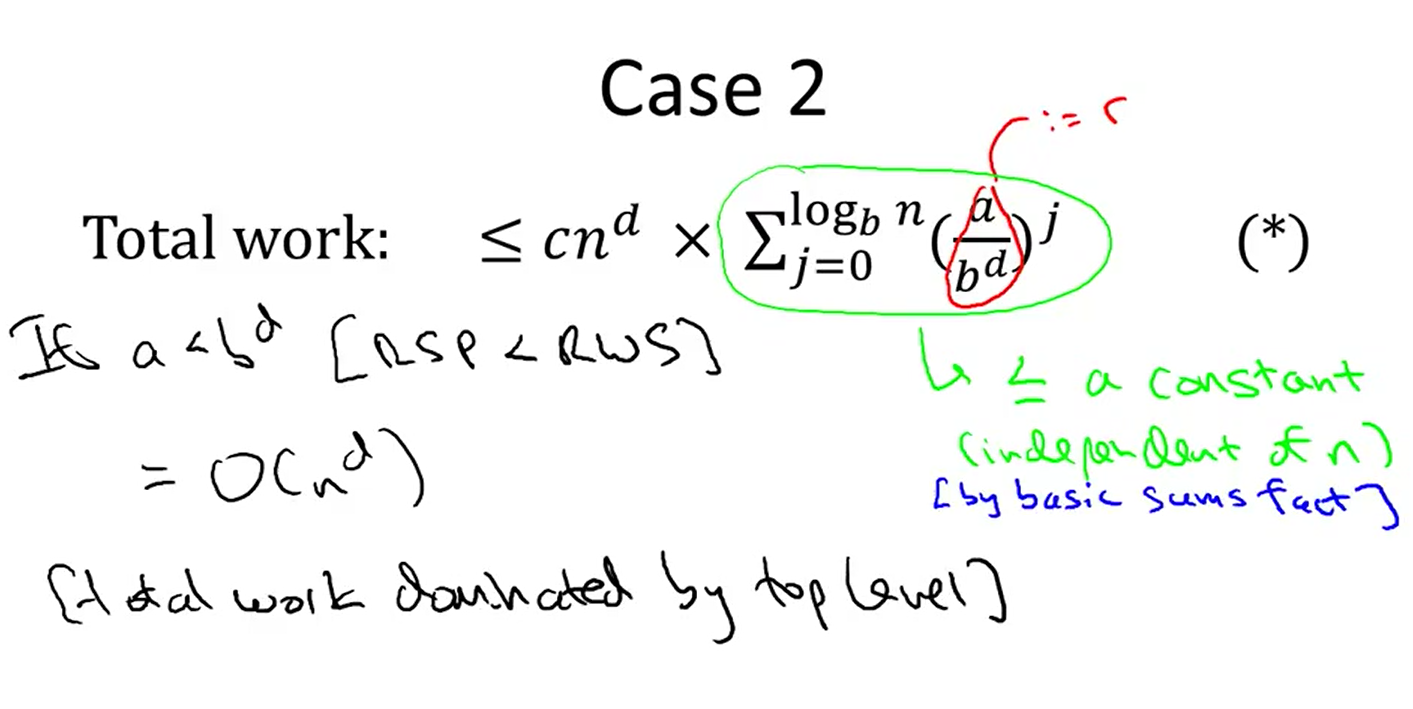 Case 2
:= r
Total work: ≤ cn^d × ∑_{j=0}^{log_b n} (a/b^d)^j (*)
If a < b^d [RSP < RWS]
↳ ≤ a constant
(independent of n)
= O(n^d)
[by basic sums fact]
[total work dominated by top level]